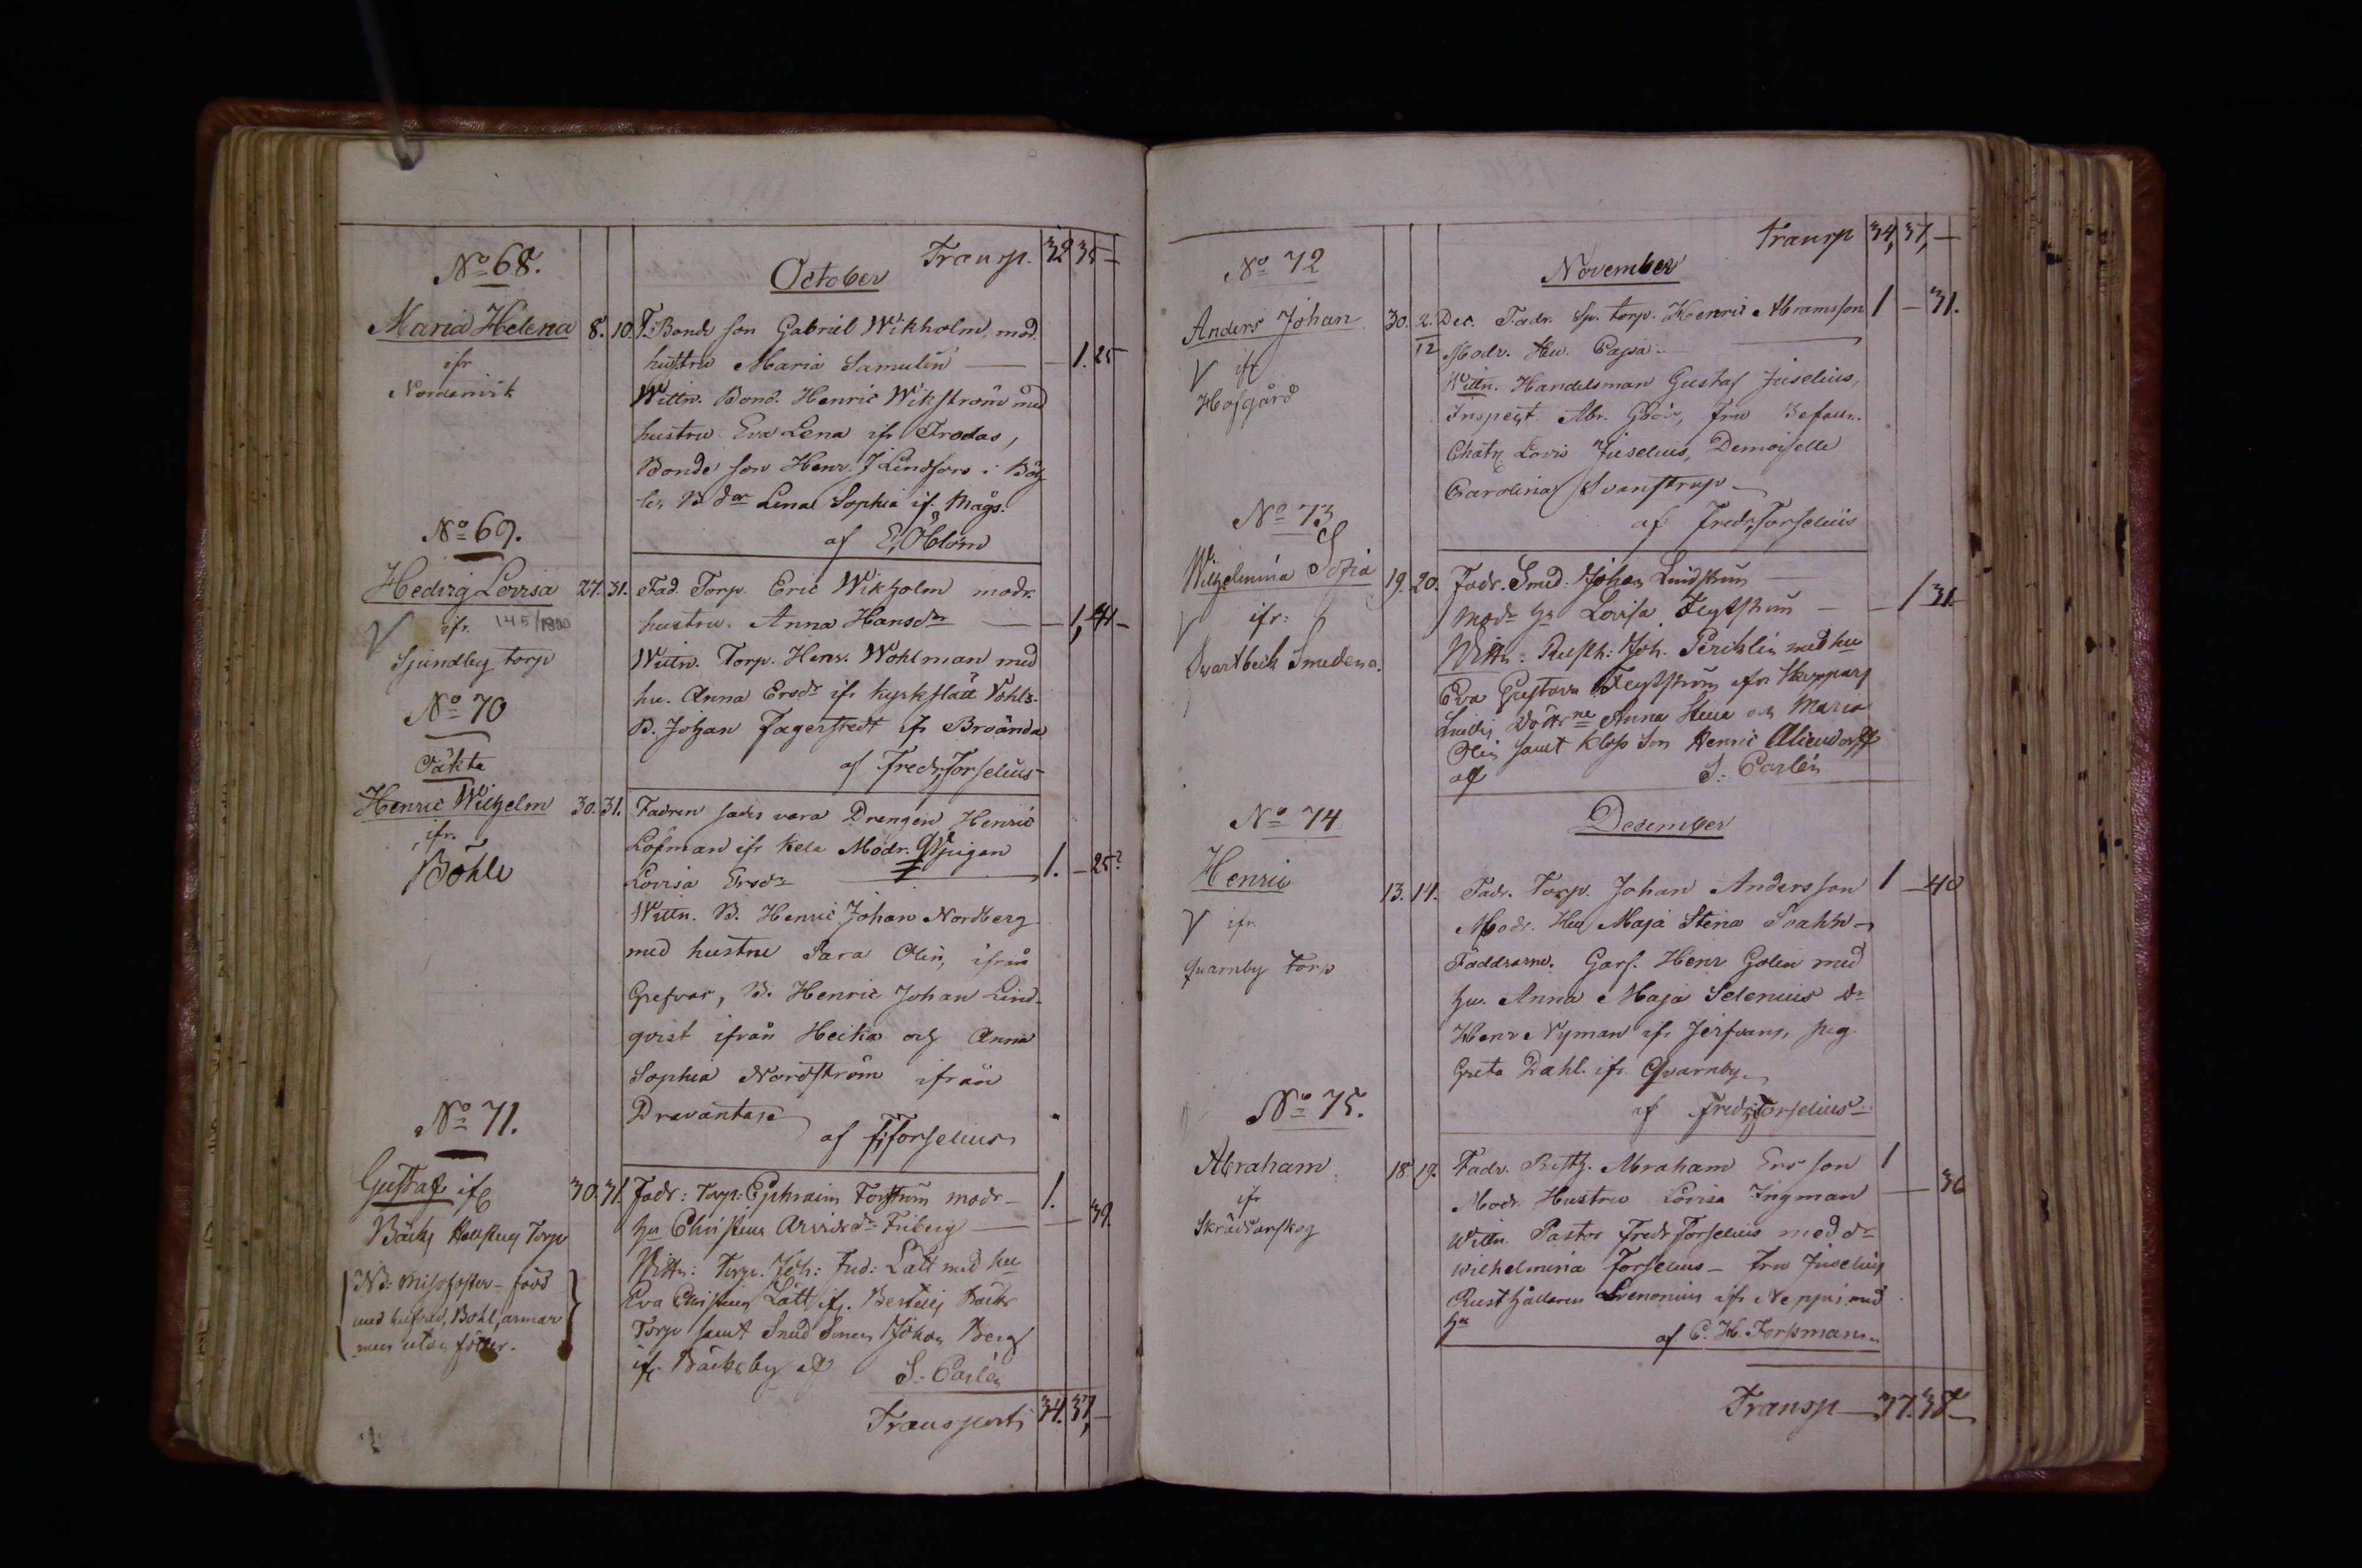 Transp. 32 35 -
No 68.
October
Maria Helena 8. 10. F. Bonde son Gabriel Wikholm, mod.
ifr hustru Maria Samulin — 1. 25
Nordanvik
Wittn. Bond. Henric Wikström med
hustru Eva Lena ifr Trodas,
Bonde son Henr. J Lindfors i Böh
le, B dor Lena Sophia if. Mågs.
af E, Öblom
No 69.
Hedvig Lovisa 27. 31. Fad. Torp. Eric Wikholm modr.
ifr. 145/1800 hustru. Anna Hansdr — 1, 41 -
Sjundby torp
Wittn. Torp. Henr. Wohlman med
hu. Anna Ersdr ifr kyrkslätt Vohls.
B. Johan Fagerstedt ifr Broända
af Fredr, Forselius -
No 70
Oäkta
Henric Wilhelm 30. 31. Fadren sades vara Drengen Henric
ifr. Löfman ifr Kela Modr. Qvpigan
Böhle Lovisa Ersdr 1. - 25?
Wittn. B. Henric Johan Nordberg
med hustru Sara Olin, ifrån
Grefvas, B. Henric Johan Lind-
qvist ifrån Heika och Anna
Sophia Nordström ifrån
Dravantaje
af F; Forselius
No 71.
Gustaf ifr 30. 31. Fadr: Torp: Ephraim Forsström modr - 1.
Bäcks Torp hu Christina Arvidsdr Friberg — 39.
Wittn: Torp. Joh: Fred: Lätt med hu
Eva Christina Lätt ifr. Backs
Torp samt Smed Sonen Johan Berg
if. Bäcksby af S. Carlén
NB: Missfoster - född
med hufvud, Bohl, armar
men utan fötter.
Transport 34. 37, -
Transp 34, 37, -
No 72
November
Anders Johan 30. 2. Dec. Fadr. Sp. torp. Henric Abramsson 1 - 31.
V ifr 12 Modr. Hu. Cajsa
Hofgård
Wittn. Handelsman Gustaf Juselius,
Inspect. Abr. fru
Lovis Juselius, Demoiselle
Carolina Svanstrup
af Fredr, Forselius
No 73
Wilhelmina Sofia 19. 20. Fadr. Smed. Johan Lindström
V ifr: Modr hu Lovisa — 1 31
Svartbeck Smeden
Wittn. Rusth: Joh. med hu
Eva Gustava ifr
Döttrne Anna Stina och Maria
Olin samt Son Henric
af S. Carlén
No 74
December
Henric 13. 14. Fadr. Torp. Johan Andersson 1 - 40
V ifr. Modr. Hu Maja Stina Svahn
Quarnby torp
Faddrarne. Garf. Henr Golin med
hu. Anna Maja Selenius dr
Henr Nyman ifr Jerfvans, pig.
Greta Dahl. ifr Qvarnby
af Fredr; Forselius
No 75.
Abraham 18. 19. Fadr. Rusth. Abraham Ersson 1
ifr Modr. Hustru Lovisa Ingman — 36
Skräddarskog
Wittn. Pastor Fredr Forselius med dr
Wilhelmina Forselius - fru Juselius
Rusthållaren ifr Neppis med
hu
af C. H. Forssman
Transp — 37. 38 -